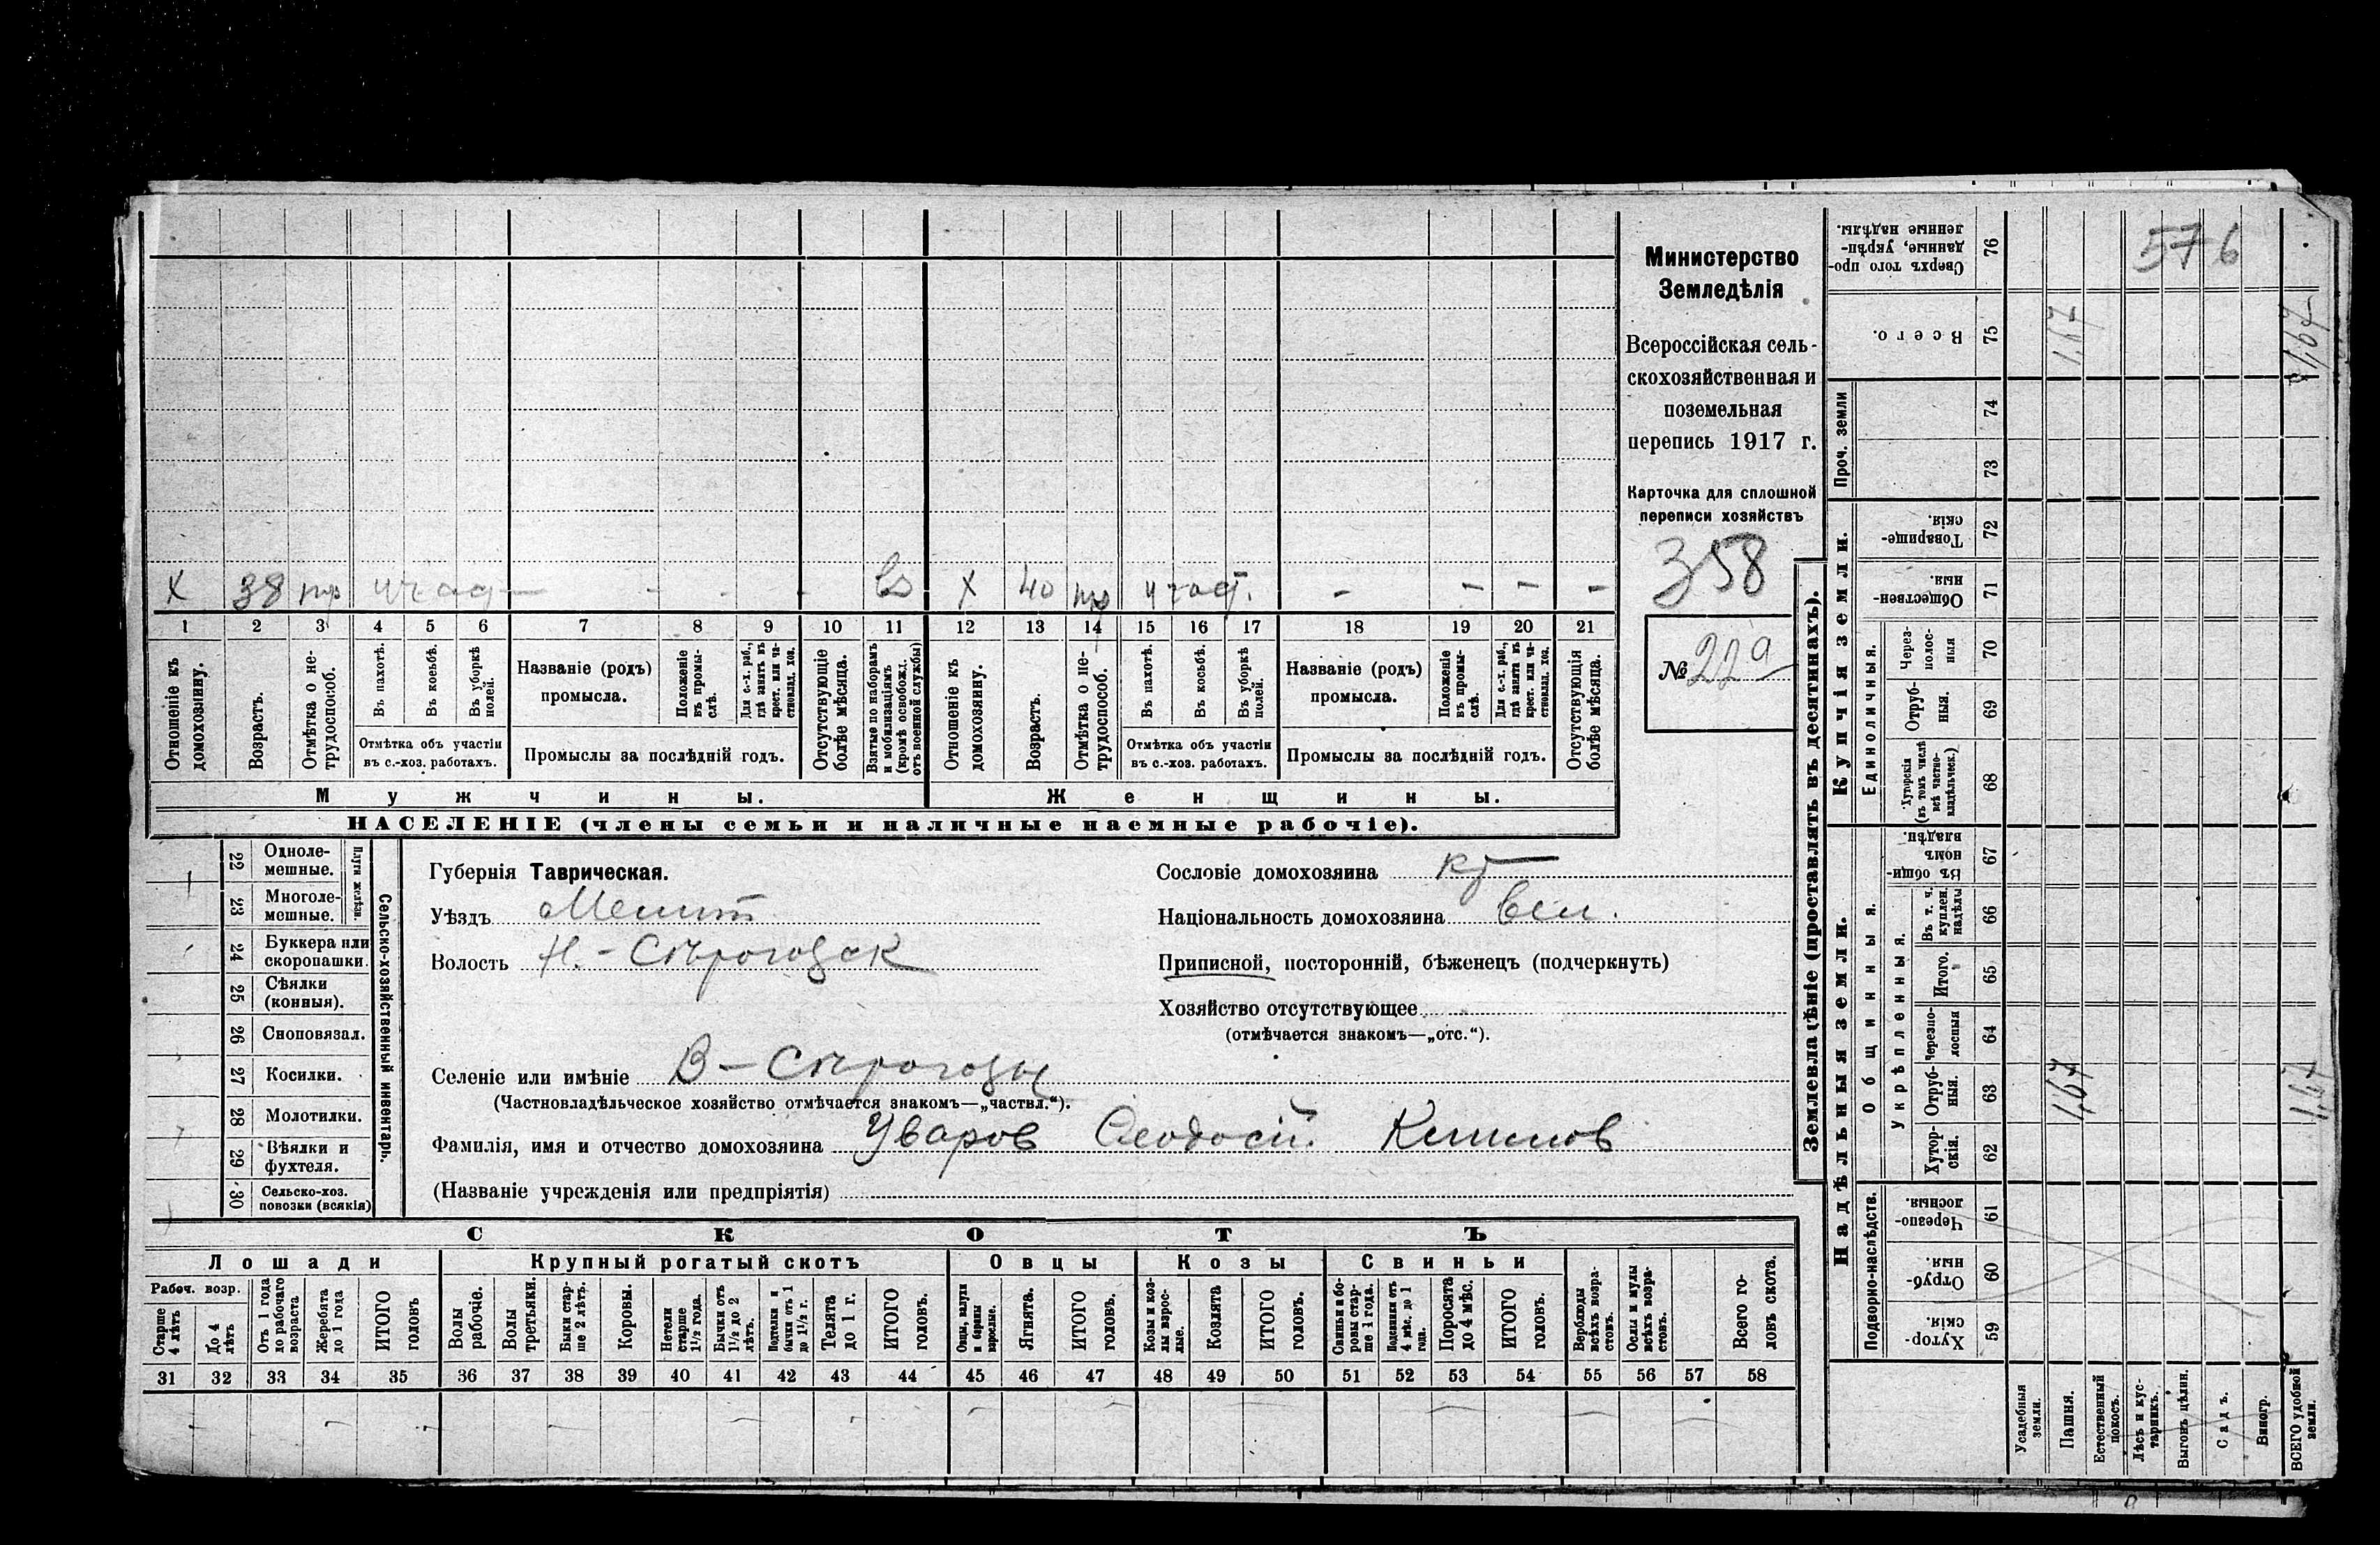 576
Министерство
Земледѣлія
Всероссійская сель-
скохозяйственная и
поземельная
перепись 1917 г.
Карточка для сплошной
переписи хозяйствъ
358
№ 229
X 38 тр участ — - - - X 40 тр участ. - - - -
1 2 3 4 5 6 7 8 9 10 11 12 13 14 15 16 17 18 19 20 21
Отношеніе къ домохозяину.
Возрастъ.
Отмѣтка о не-
трудоспособ.
Въ пахотѣ.
Въ косьбѣ.
Въ уборкѣ
полей.
Отмѣтка объ участіи
въ с.-хоз. работахъ.
Названіе (родъ)
промысла.
Положеніе
въ промы-
слѣ.
Для с.-х. раб.,
гдѣ занятъ въ
крест. или ча-
стновлад. хоз.
Промыслы за послѣдній годъ.
Отсутствующіе
болѣе мѣсяца.
Взятые по наборамъ
и мобилизаціямъ
(кромѣ освобожд.
отъ военной службы)
Отношеніе къ
домохозяину.
Возрастъ.
Отмѣтка о не-
трудоспособ.
Въ пахотѣ.
Въ косьбѣ.
Въ уборкѣ
полей.
Отмѣтка объ участіи
въ с.-хоз. работахъ.
Названіе (родъ)
промысла.
Положеніе
въ промы-
слѣ.
Для с.-х. раб.,
гдѣ занята въ
крест. или ча-
стновлад. хоз.
Промыслы за послѣдній годъ.
Отсутствующія
болѣе мѣсяца.
Мужчины.
Женщины.
НАСЕЛЕНІЕ (члены семьи и наличные наемные рабочіе).
22 Одноле-
мешные.
23 Многоле-
мешные.
Плуги желѣзн.
24 Буккера или
скоропашки.
25 Сѣялки
(конныя).
26 Сноповязал.
27 Косилки.
28 Молотилки.
29 Вѣялки и
фухтеля.
30 Сельско-хоз.
повозки (всякія)
Сельско-хозяйственный инвентарь.
Губернія Таврическая.
Уѣздъ Мелит
Волость Н.-Сѣрогозск
Селеніе или имѣніе В-Сѣрогозы
(Частновладѣльческое хозяйство отмѣчается знакомъ—„частвл.“).
Фамилія, имя и отчество домохозяина Уваров Феодосій.
(Названіе учрежденія или предпріятія)
Сословіе домохозяина кр
Національность домохозяина вел.
Приписной, посторонній, бѣженецъ (подчеркнуть)
Хозяйство отсутствующее
(отмѣчается знакомъ—„отс.“).
СКОТЪ
Лошади
Крупный рогатый скотъ
Овцы
Козы
Свиньи
Рабоч. возр.
Старше
4 лѣтъ
До 4
лѣтъ
Отъ 1 года
до рабочаго
возраста
Жеребята
до 1 года
ИТОГО
головъ
Волы
рабочіе.
Волы
третьяки.
Быки стар-
ше 2 лѣтъ.
Коровы.
Нетели
старше
1½ года.
Бычки отъ
1½ до 2
лѣтъ.
Подтелки и
бычки отъ 1
до 1½ г.
Телята
до 1 г.
ИТОГО
головъ.
Овцы, валухи
и бараны
взрослые.
Ягнята.
ИТОГО
головъ.
Козы и коз-
лы взрос-
лые.
Козлята
ИТОГО
головъ.
Свиньи и бо-
ровы стар-
ше 1 года.
Подсвинки отъ
4 мѣс. до 1
года.
Поросята
до 4 мѣс.
ИТОГО
головъ.
Верблюды
всѣхъ возра-
стовъ.
Ослы и мулы
всѣхъ возра-
стовъ.
Всего го-
ловъ скота.
31 32 33 34 35 36 37 38 39 40 41 42 43 44 45 46 47 48 49 50 51 52 53 54 55 56 57 58
Землевладѣніе (проставлять въ десятинахъ).
Надѣльныя земли.
Купчія земли.
Проч. земли
Подворно-наслѣдств.
Общинныя.
Укрѣпленныя.
Единоличныя.
Хутор-
скія.
59
Отруб-
ныя.
60
Черезпо-
лосныя.
61
Хутор-
скія.
62
Отруб-
ныя.
63
Черезпо-
лосныя
64
Итого.
65
Въ т. ч.
куплен.
надѣлы
66
Въ общин-
номъ
владѣн.
67
Хуторскія
(въ томъ числѣ
всѣ частно-
владѣльческ.)
68
Отруб-
ныя.
69
Через-
полос-
ныя
70
Обществен-
ныя.
71
Товарище-
скія.
72
73
74
Всего.
75
Сверхъ того про-
данные, укрѣп-
ленные надѣлы.
76
Усадебныя
земли.
Пашня.
Естественный
покосъ.
Лѣсъ и кус-
тарникъ.
Выгонъ цѣлин.
Садъ.
Виногр.
ВСЕГО удобной
земли.
1,67
1,67
1,67
1,67